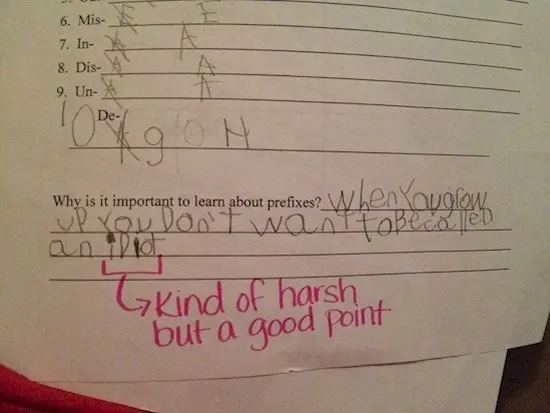 6. Mis- E
7. In- A
8. Dis- A
9. Un- A
10 De- g H
Why is it important to learn about prefixes? When You grow
up You Don't want to Be calleD
an iDiot
Kind of harsh
but a good point